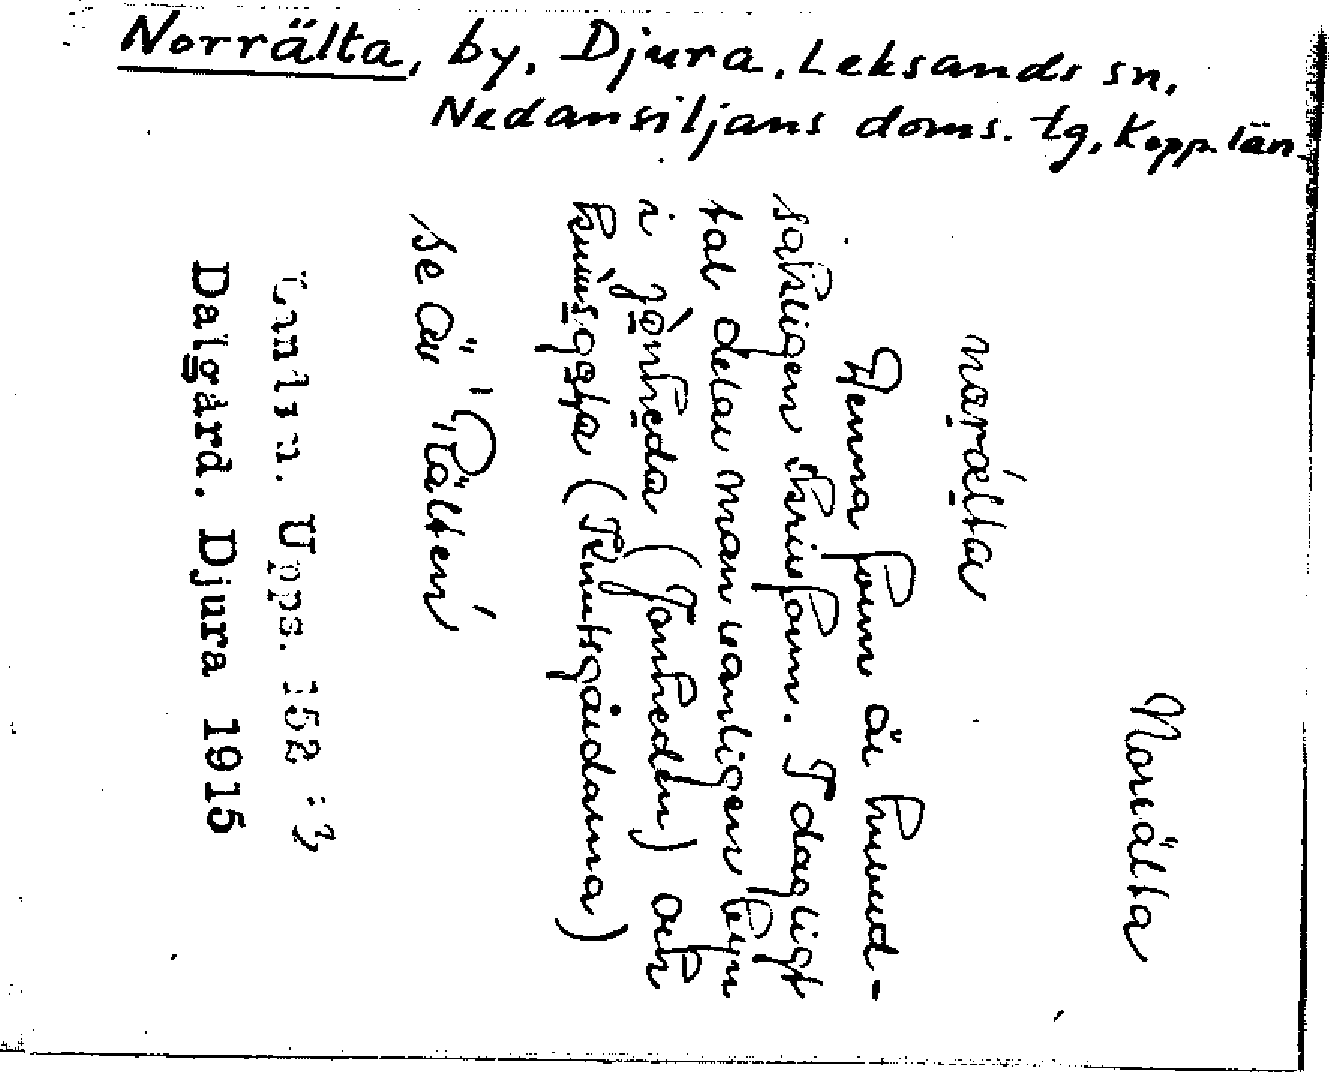 Norrälta, by, Djura, Leksands sn,
Nedansiljans doms. tg, Kopp. län
Norrälta
norælta
Denna form är huvud-
sakligen skriftform. I dagligt
tal delar man vanligen byn
i jònheda (Jonheden) och
(Knutsgårdarna)
se äv "Rälten"
Upps. 152 :3
Dalgård. Djura 1915